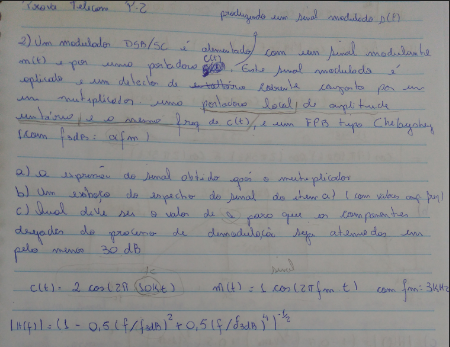 Prova Telecom P.2
produzindo um sinal modulado s(t)
2) Um modulador DSB/SC é alimentado com um sinal modulante
m(t) e por uma portadora c(t). Este sinal modulado é
aplicado a um detector de coerente composto por um
um multiplicador uma portadora local de amplitude
unitária e a mesma freq de c(t), e um FPB tipo Chebyshev
(com f3dB = a fm)
a) a expressão do sinal obtido após o multiplicador
b) Um esboço do espectro do sinal do item a) (com valores amp. freq)
c) Qual deve ser o valor de a para que os componentes
do processo de demodulação seja atenuados em
pelo menos 30 dB
sinal
c(t) = 2 cos(2π 10k t) m(t) = 1 cos(2π fm t) com fm: 3kHz
|H(f)| = (1 - 0,5 (f/f3dB)² + 0,5 (f/f3dB)⁴)^-1/2